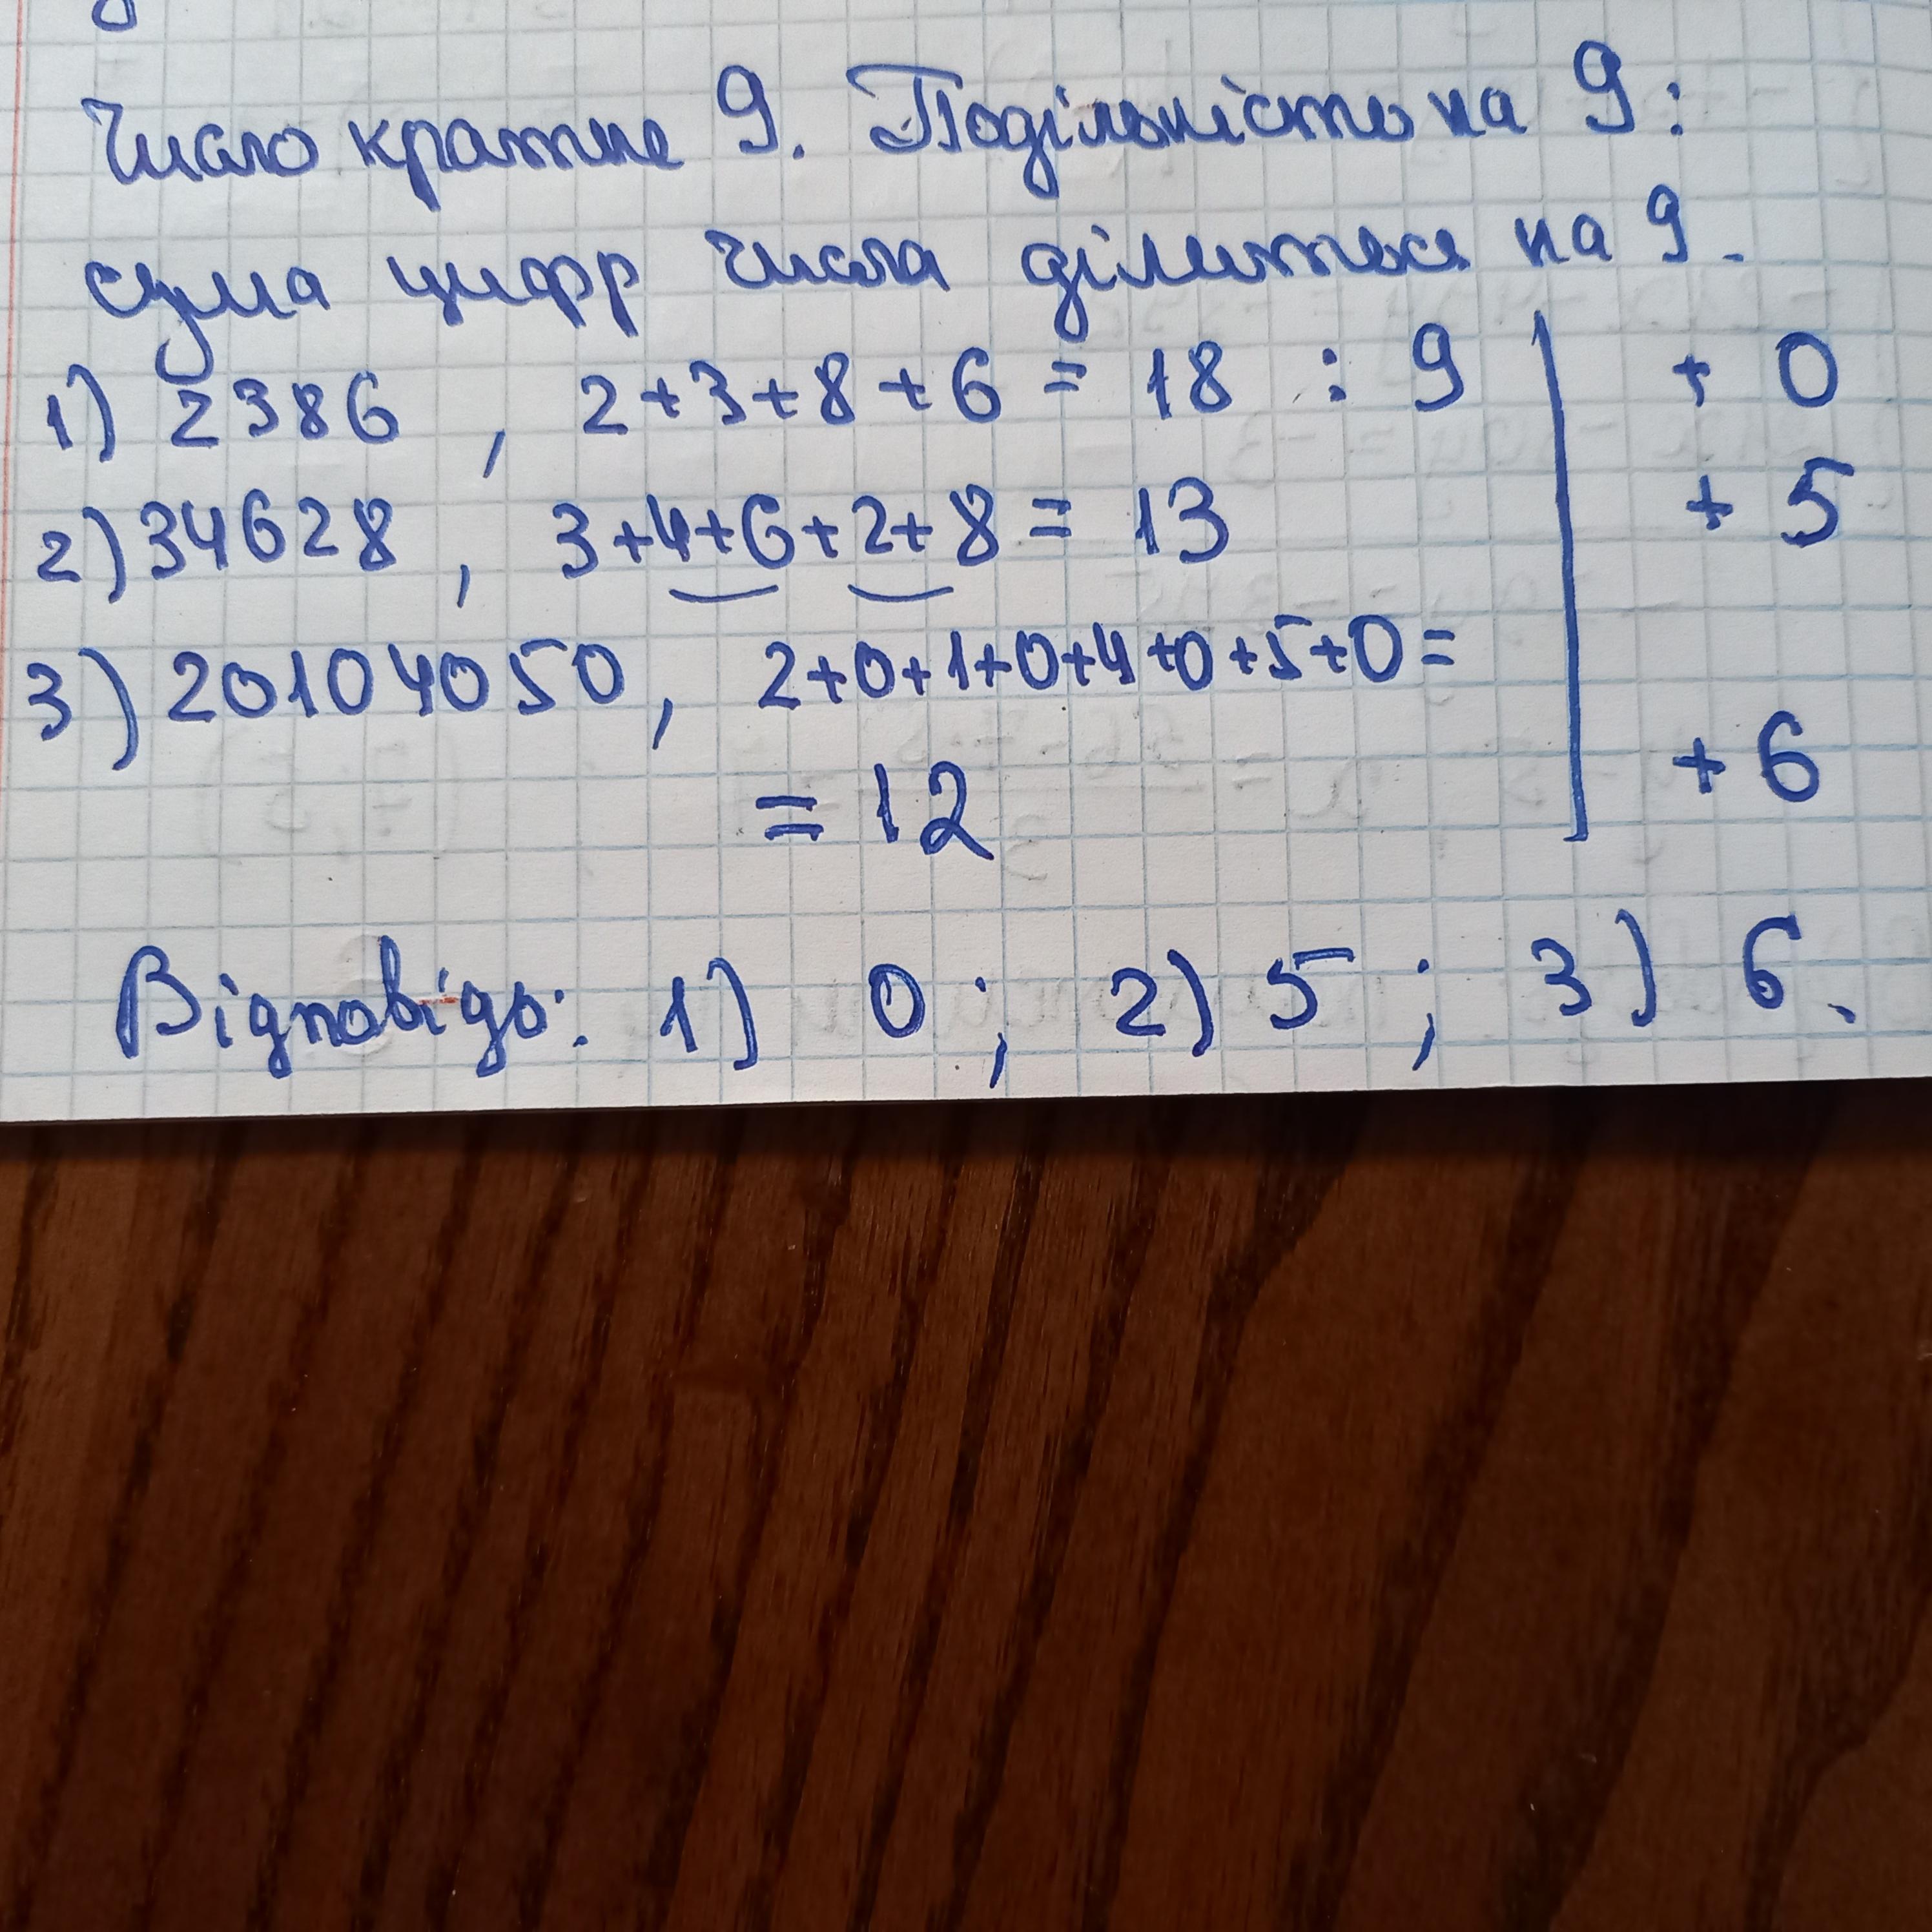 Число кратне 9. Подільність на 9:
сума цифр числа ділиться на 9.
1) 2386 , 2+3+8+6 = 18 : 9 + 0
2) 34628 , 3+4+6+2+8 = 13 + 5
3) 20104050, 2+0+1+0+4+0+5+0=
= 12 + 6
Відповідь: 1) 0 ; 2) 5 ; 3) 6.